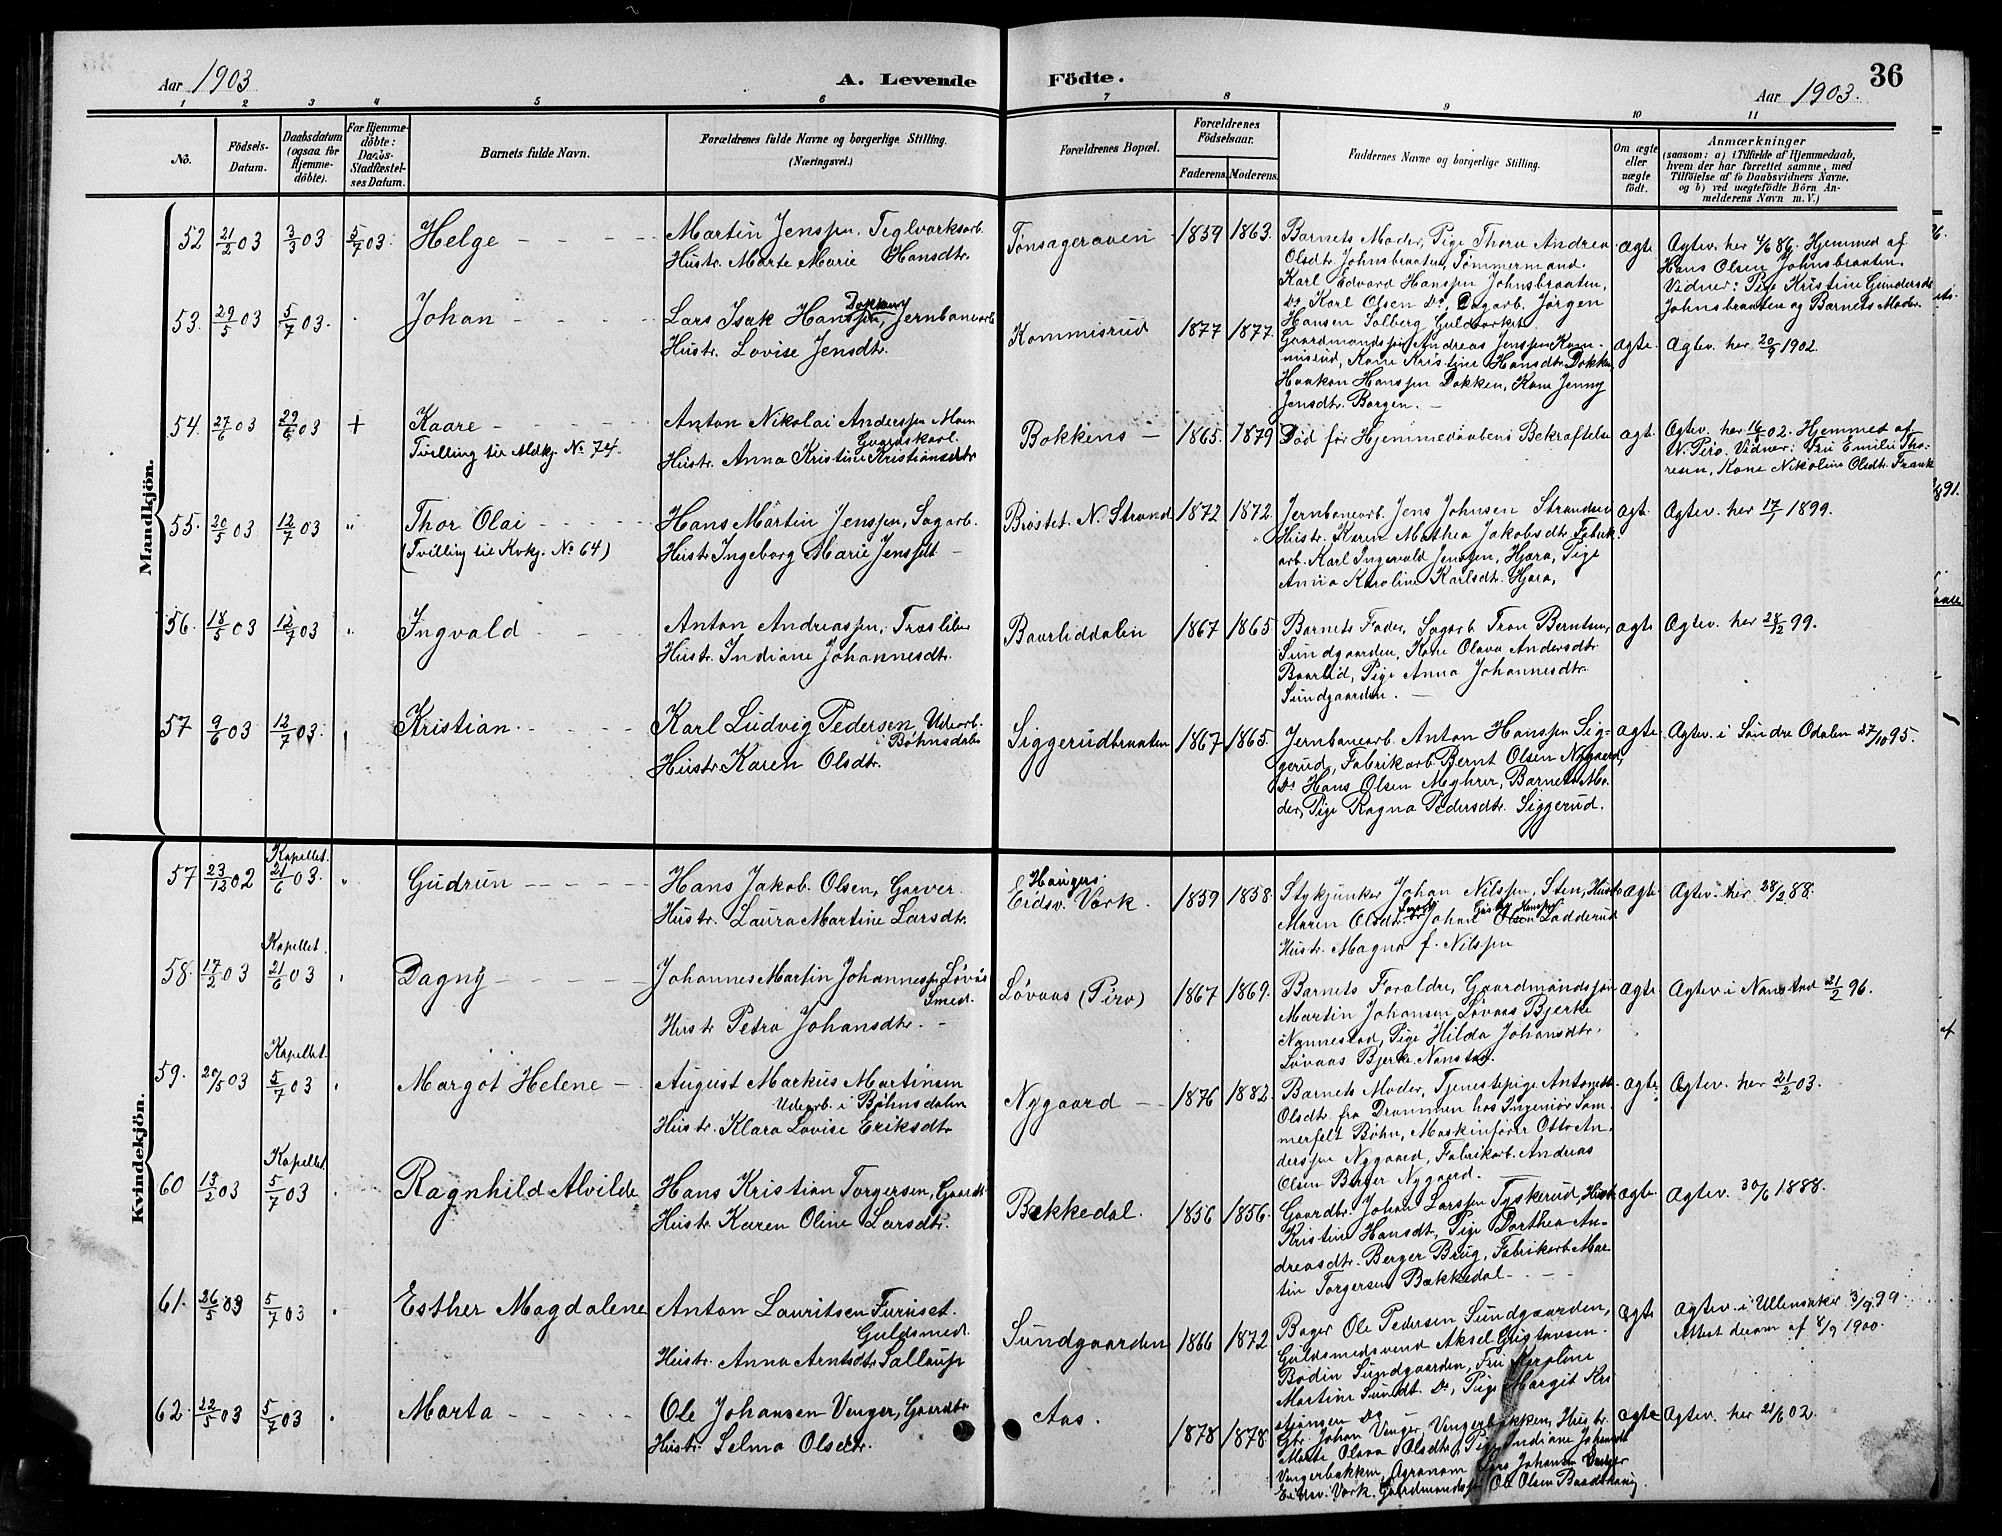 Aar 1903
A. Levende Födte.
Aar 1903.
36
1 2 3 4 5 6 7 8 9 10 11
No.
Födsels-Datum.
Daabsdatum (ogsaa for Hjemme-döbte).
For Hjemme-döbte: Daabs-Stadfæstel-ses Datum.
Barnets fulde Navn.
Forældrenes fulde Navne og borgerlige Stilling. (Næringsvei.)
Forældrenes Bopæl.
Forældrenes Födselsaar.
Faderens. Moderens.
Faddernes Navne og borgerlige Stilling.
Om ægte eller uægte födt.
Anmærkninger
(saasom: a) i Tilfælde af Hjemmedaab,
hvem der har forrettet samme, med
Tilföielse af to Daabsvidners Navne.
og b) ved uægtefödte Börn An-
melderens Navn m. V.)
Mandkjön.
52 21/2 03 3/3 03 5/7 03. Helge
Martin Jenssen, Teglværksarb.
Hustr. Marte Marie Hansdtr.
Tonsageraven 1859 1863.
Barnets Moder, Pige Thora Andrea
Olsdtr. Johnsbraaten, Tømmermand
Karl Edvard Hanssen Johnsbraaten,
Do Karl Olsen Do, Dagarb. Jörgen
Hansen Solberg Guldværket
ægte
Ægtev. her 4/6 86. Hjemmed. af
Hans Olsen Johnsbraaten.
Vidner: Pige Kristine Gundersdtr
Johnsbraaten og Barnets Moder.
53. 29/5 03 5/7 03. Johan
Lars Isak Hanssen, Dokken, Jernbanearb.
Hustr. Lovise Jensdtr.
Kommisrud 1877 1877
Gaardmandssøn Andreas Jenssen Kom-
misrud, Kone Kristine Hansdtr. Dokken,
Haakon Hanssen Dokken, Kone Jenny
Jensdtr. Borgen.
ægte.
Ægtev. her 20/9 1902.
54. 27/6 03 29/6 03 + Kaare
Tvilling til Mdkj. No 74.
Anton Nikolai Anderssen Moen
Gaardskarl.
Hustr. Anna Kristine Kristiansdtr
Bakkens 1865. 1879
Død før Hjemmedaabens Bekræftelse
ægt.
Ægtev. her 16/5 02. Hjemmed. af
N. Piro. Vidner: Fru Emilie Tho-
resen, Kone Nikoline Olsdtr. Frank
55. 20/5 03 12/7 03 " Thor Olai
(Tvilling til Kvkj. No 64)
Hans Martin Jenssen, Sagarb.
Hustr. Ingeborg Marie Jensdt
Bröstet N. Strand 1872 1872
Jernbanearb. Jens Johnsen Strand
Hustr. Karen Mathea Jakobsdtr. Fabrik
arb. Karl Ingevald Jenssen, Hjera, Pige
Anna Karoline Karlsdtr. Hjera,
ægt.
Ægtev. her 17/7 1899.
56. 18/5 03 12/7 03 " Ingvald
Anton Andreassen, Træsliber
Hustr. Indiane Johannesdtr.
Baarliddalen 1867 1865
Barnets Fader, Sagarb. Tron Berntsen,
Sundgaarden, Kone Olava Andersdtr
Baarlid, Pige Anna Johannesdtr.
Sundgaarden.
ægte
Ægtev. her 28/12 99.
57 9/6 03 12/7 03. Kristian.
Karl Ludvig Pedersen, Udearb.
i Bøhnsdalen
Hustr. Karen Olsdtr.
Siggerudbraaten 1867 1865.
Jernbanearb. Anton Hanssen Sig-
gerud, Fabrikarb. Bernt Olsen Nygaard,
Do Hans Olsen Myhrer, Barnets Mo-
der, Pige Ragna Pedersdtr. Siggerud.
ægte
Ægtev. i Søndre Odalen 27/10 95.
Kvindekjön.
Kapellet.
57 23/12 02 21/6 03. " Gudrun
Hans Jakob Olsen, Garver.
Hustr. Laura Martine Larsdtr.
Haugers.
Eidsv. Værk. 1859 1858.
Stykjunker Johan Nilssen, Sten, Hustr
Maren Olsdtr. Johan Olsen Ladderud
Hustr. Magna f. Nilssen
ægte.
Ægtev. her 28/2 88.
Kapellet.
58. 17/2 03 21/6 03 Dagny
Johannes Martin Johannessen Løvås
Smed.
Hustr Petra Johansdtr.
Løvaas (Piro) 1867 1869.
Barnets Forældre, Gaardmandssøn
Martin Johansen Løvaas Bjerke
Nannestad, Pige Hilda Johansdtr.
Løvaas Bjerke Nanstad.
ægte
Ægtev. i Nanstad 21/2 96.
Kapellet.
59. 20/5 03 5/7 03 Margot Helene
August Markus Martinsen
Udearb. i Bøhnsdalen
Hustr. Klara Lovise Eriksdtr.
Nygaard 1876 1882.
Barnets Moder, Tjenestepige Antonette
Olsdtr. fra Drammen hos Ingeniør Som-
merfelt Bøhn, Maskinfører Otto An-
derssen Nygaard, Fabrikarb. Andreas
Olsen Berger Nygaard.
ægte.
Ægtev. her 21/2 03.
Kapellet.
60 13/2 03 5/7 03 Ragnhild Alvilde
Hans Kristian Torgersen, Gaardbr.
Hustr. Karen Oline Larsdtr.
Bækkedal. 1856 1856.
Gaardbr. Johan Larssen Tyskerud, Hustr.
Kristine Hansdtr, Pige Dorthea An-
dreasdtr. Berger Brug, Fabrikarb. Mar-
tin Torgersen Bækkedal
ægte.
Ægtev. 30/6 1888.
61. 26/5 03 5/7 03 Esther Magdalene
Anton Lauritsen Furuset.
Guldsmed.
Hustr. Anna Arntsdtr. Sallaup
Sundgaarden 1866 1872
Bager Ole Pedersen Sundgaarden,
Guldsmedsvend Aksel Gustavsen.
Bødin Sundgaarden, Fru Karoline
Martine Sundt. Do, Pige Margit Kri
stiansen Do
ægte
Ægtev. i Ullensaker 3/9 99.
Attest derom af 8/9 1900.
62. 22/5 03 5/7 03 Marta
Ole Johansen Venger, Gaardbr
Hustr. Selma Olsdtr.
Aas. 1878 1878
Gbr. Johan Venger, Vengerbakken, Hustr.
Marte Olava Olsdtr, Pige Indiane Johansdt
Vengerbakken, Agronom Lars Johansen Venger
Eidsv. Værk. Gaardmandss. Ole Olsen Baadshaug
ægte
Ægtev. her 21/6 02.